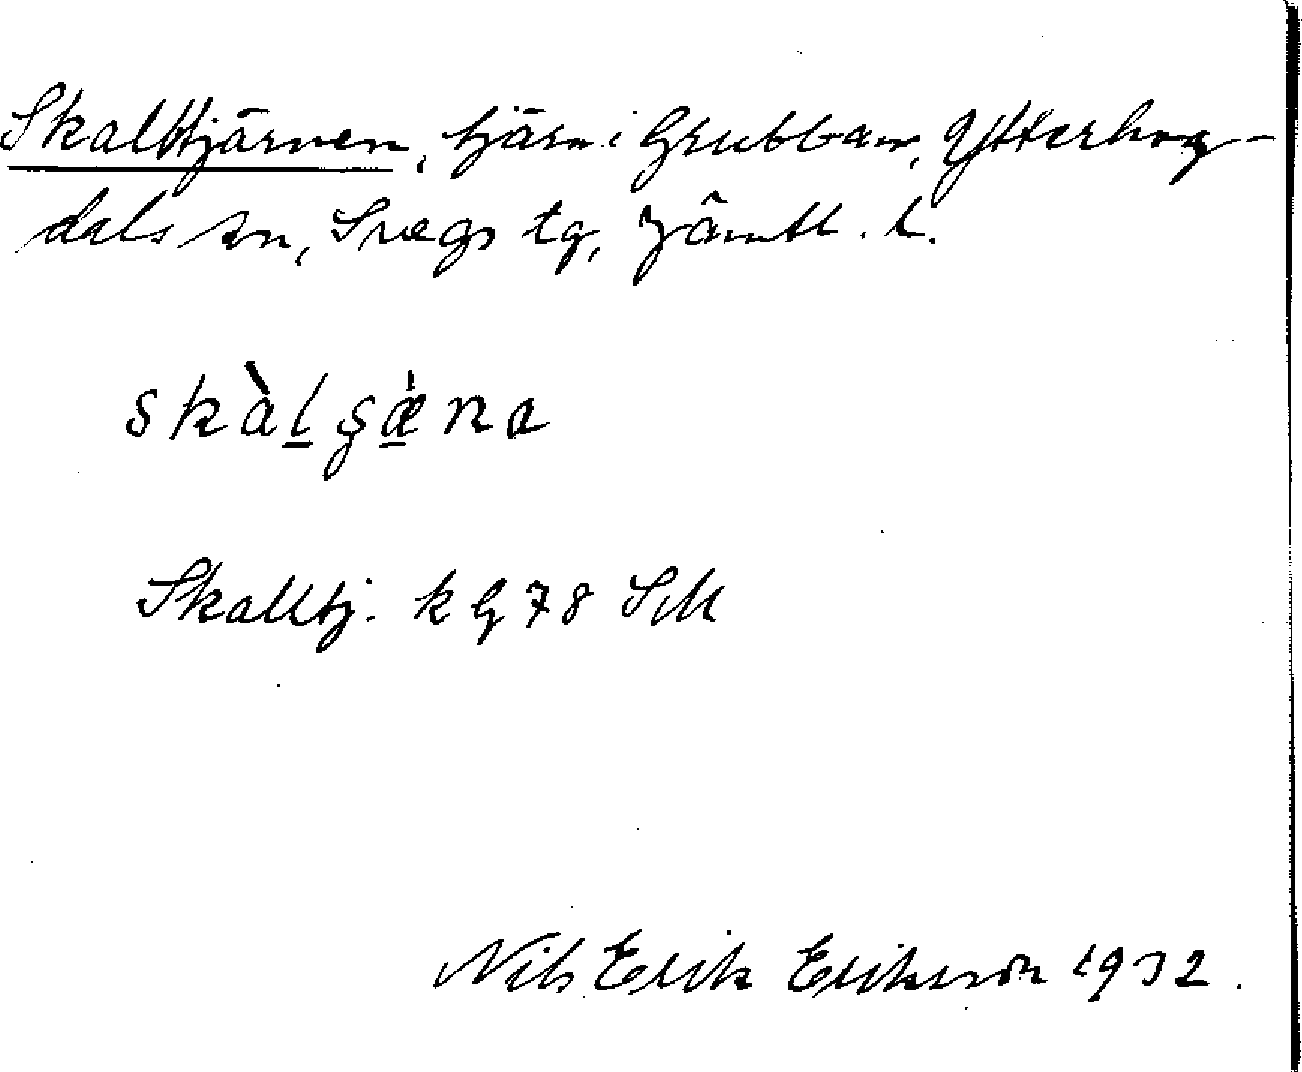 Skalltjärnen, tjärn i Grubban, Ytterhog-
dals sn, Svegs tg, Jämtl. l.
skàlşæ̀na
Skalltj. k G 78 SM
Nils Erik Erikson 1932.